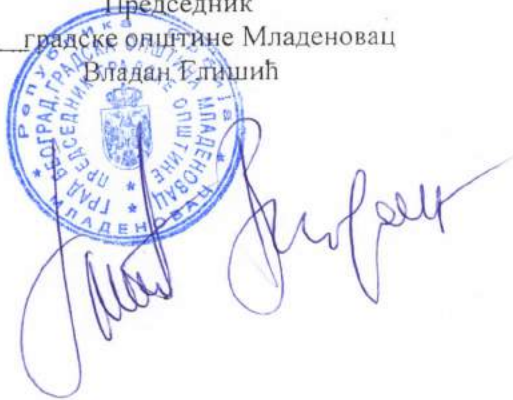 Председник
градске општине Младеновац
Владан Глишић
Република Србија
ГРАД БЕОГРАД, ГРАДСКА ОПШТИНА МЛАДЕНОВАЦ
ПРЕДСЕДНИК ГРАДСКЕ ОПШТИНЕ
МЛАДЕНОВАЦ